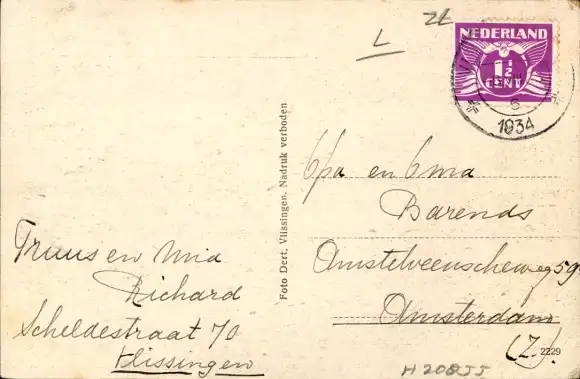 L
NEDERLAND
1½
CENT
6
1934
Opa en Oma
Barends
Amstelveenscheweg 59
Amsterdam
(Z.)
2229
Foto Dert, Vlissingen. Nadruk verboden
Truus en Mia
Richard
Scheldestraat 70
Vlissingen